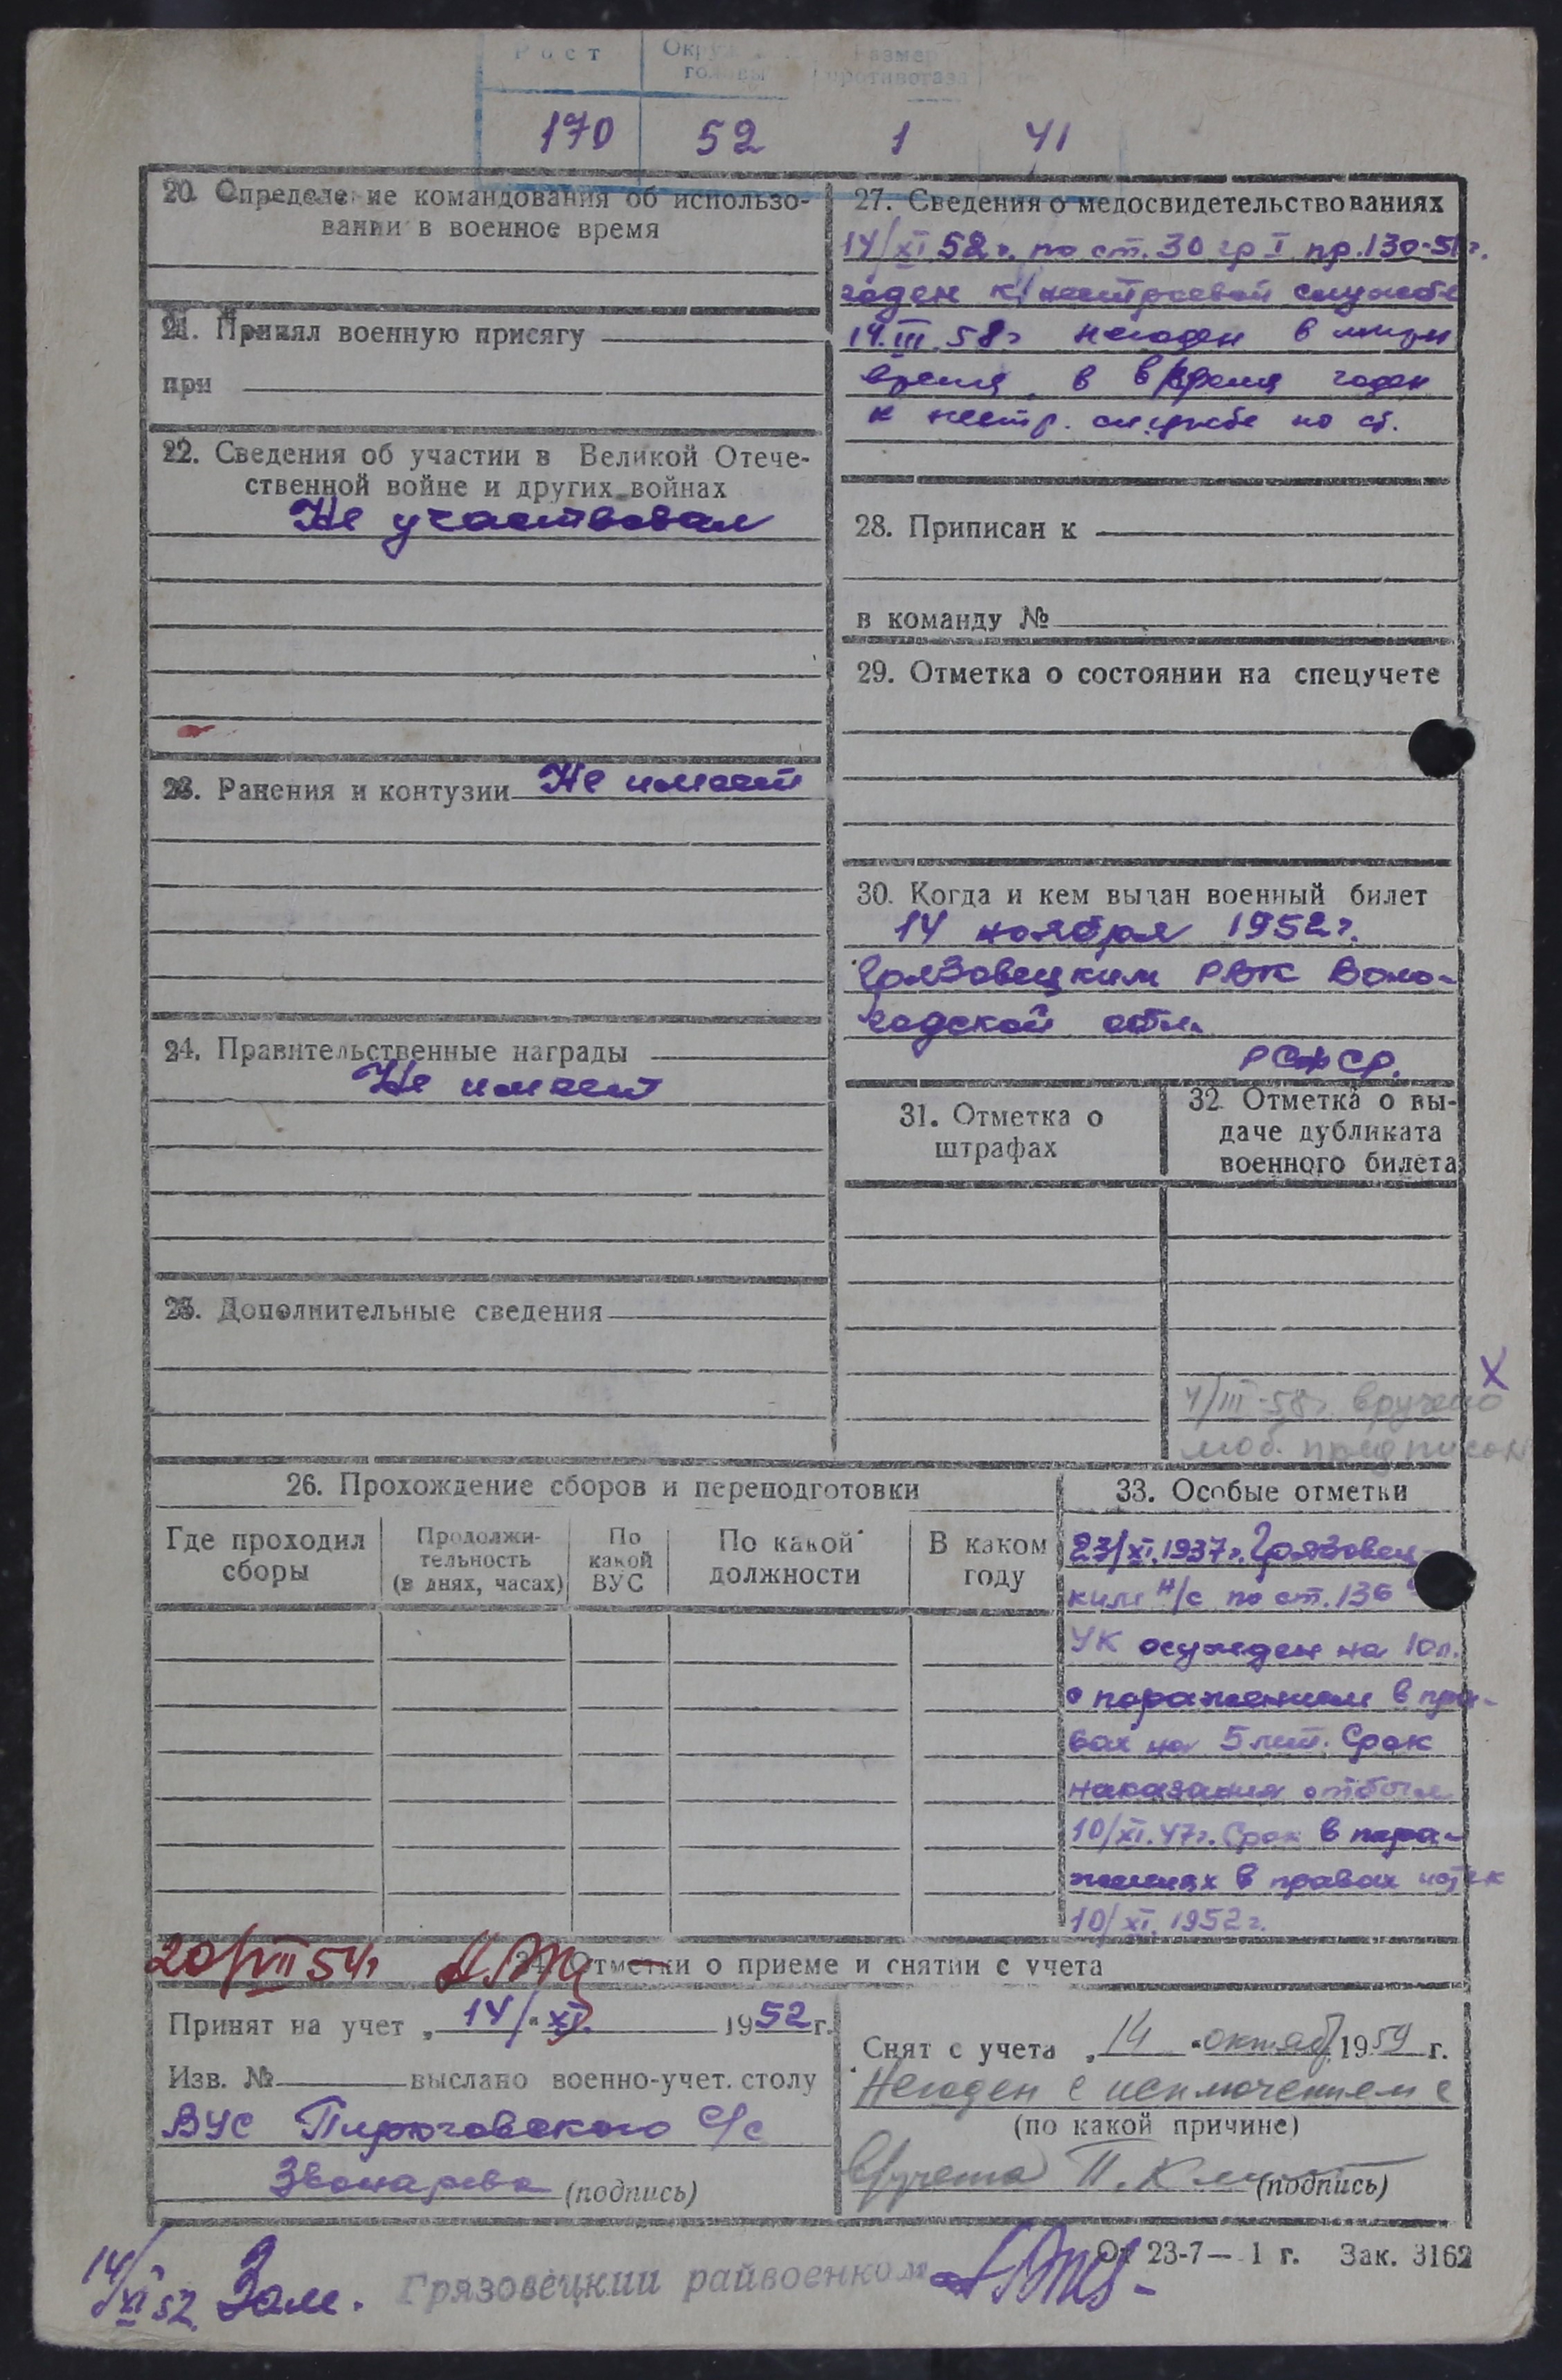 Рост
Окру
головы
Размер
противогаза
170 52 1 41
20. Определение командования об использо-
вании в военное время
21. Принял военную присягу
при
22. Сведения об участии в Великой Отече-
ственной войне и других войнах
Не участвовал
23. Ранения и контузии Не имеет
24. Правительственные награды
Не имеет
25. Дополнительные сведения
27. Сведения о медосвидетельствованиях
14/XI 52г. по ст. 30 гр I пр. 130-51г.
годен к нестроевой службе
14.III.58г негоден в мирн
время, в в/время годен
к нестр. службе по ст.
28. Приписан к
в команду №
29. Отметка о состоянии на спецучете
30. Когда и кем выдан военный билет
14 ноября 1952г.
Грязовецким РВК Воло-
годской обл.
РСФСР.
31. Отметка о
штрафах
32. Отметка о вы-
даче дубликата
военного билета
X
4/III-58г. вручено
моб. предписан
26. Прохождение сборов и переподготовки
Где проходил
сборы
Продолжи-
тельность
(в днях, часах)
По
какой
ВУС
По какой
должности
В каком
году
33. Особые отметки
23/XI.1937г. Грязовец-
ким н/с по ст. 136
УК осужден на 10л.
с поражением в пра-
вах на 5 лет. Срок
наказания отбыл
10/XI.47г. Срок в пора-
жениях в правах истек
10/XI.1952г.
20/VII 54г
34. Отметки о приеме и снятии с учета
Принят на учет „14/" XI. 1952г.
Изв. № выслано военно-учет. столу
ВУС Пирюговского С/с
Звонарева (подпись)
Снят с учета „14 " октяб 1959 г.
Негоден с исключением с
(по какой причине)
в/учета (подпись)
От 23-7— 1 г. Зак. 3162
14/XI 52 Зам. Грязовецкий райвоенком